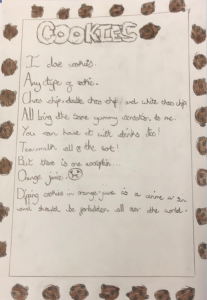 COOKIES
I love cookies.
Any type of cookie.
Choc chip, double choc chip and white choc chip
All bring the same yummy sensation to me.
You can have it with drinks too!
Tea, milk all of the sort!
But there is one exception...
Orange juice.
Dipping cookies in orange juice is a crime a sin
and should be forbidden all over the world.